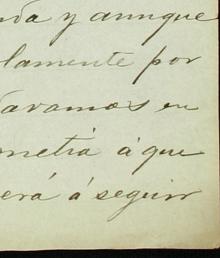 nda y aunque
lamente por
tavamos en
metiá á que
erá á seguir